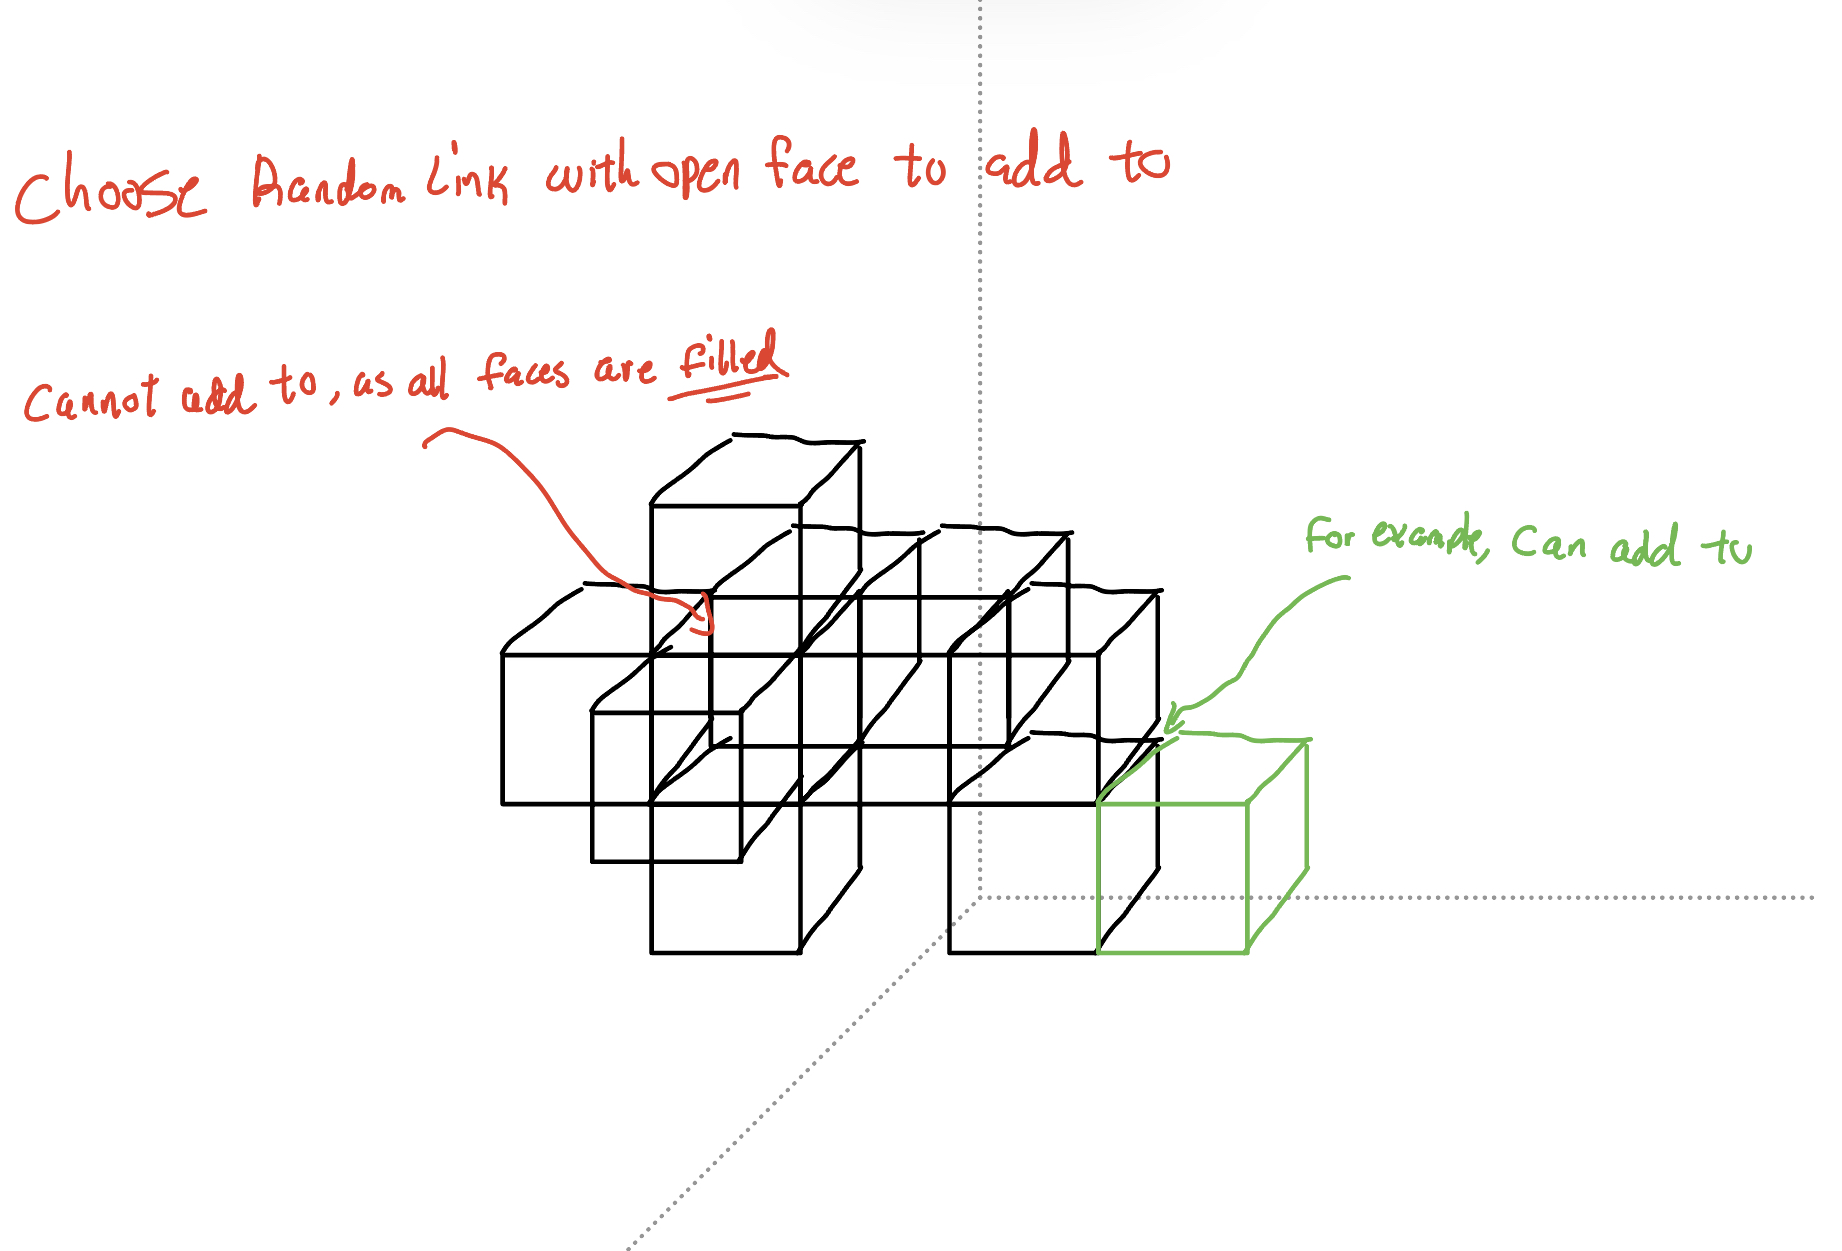 Choose Random Link with open face to add to
Cannot add to, as all faces are filled
For example, Can add to